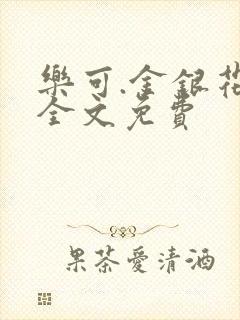 樂可.金銀花
全文免費
果茶愛清酒